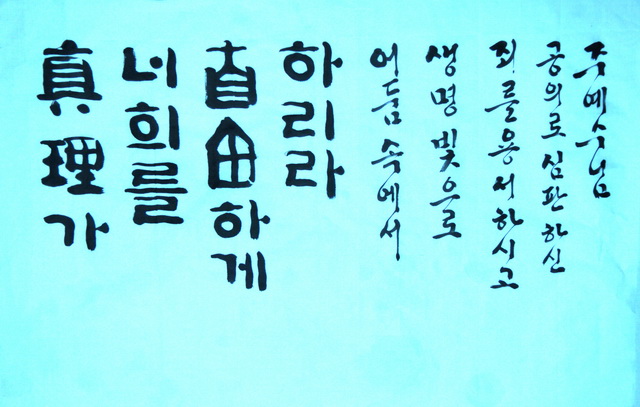 真理가
너희를
自由하게
하리라
어둠 속에서
생명 빛으로
죄를 용서하시고
공의로 심판하신
주예수님